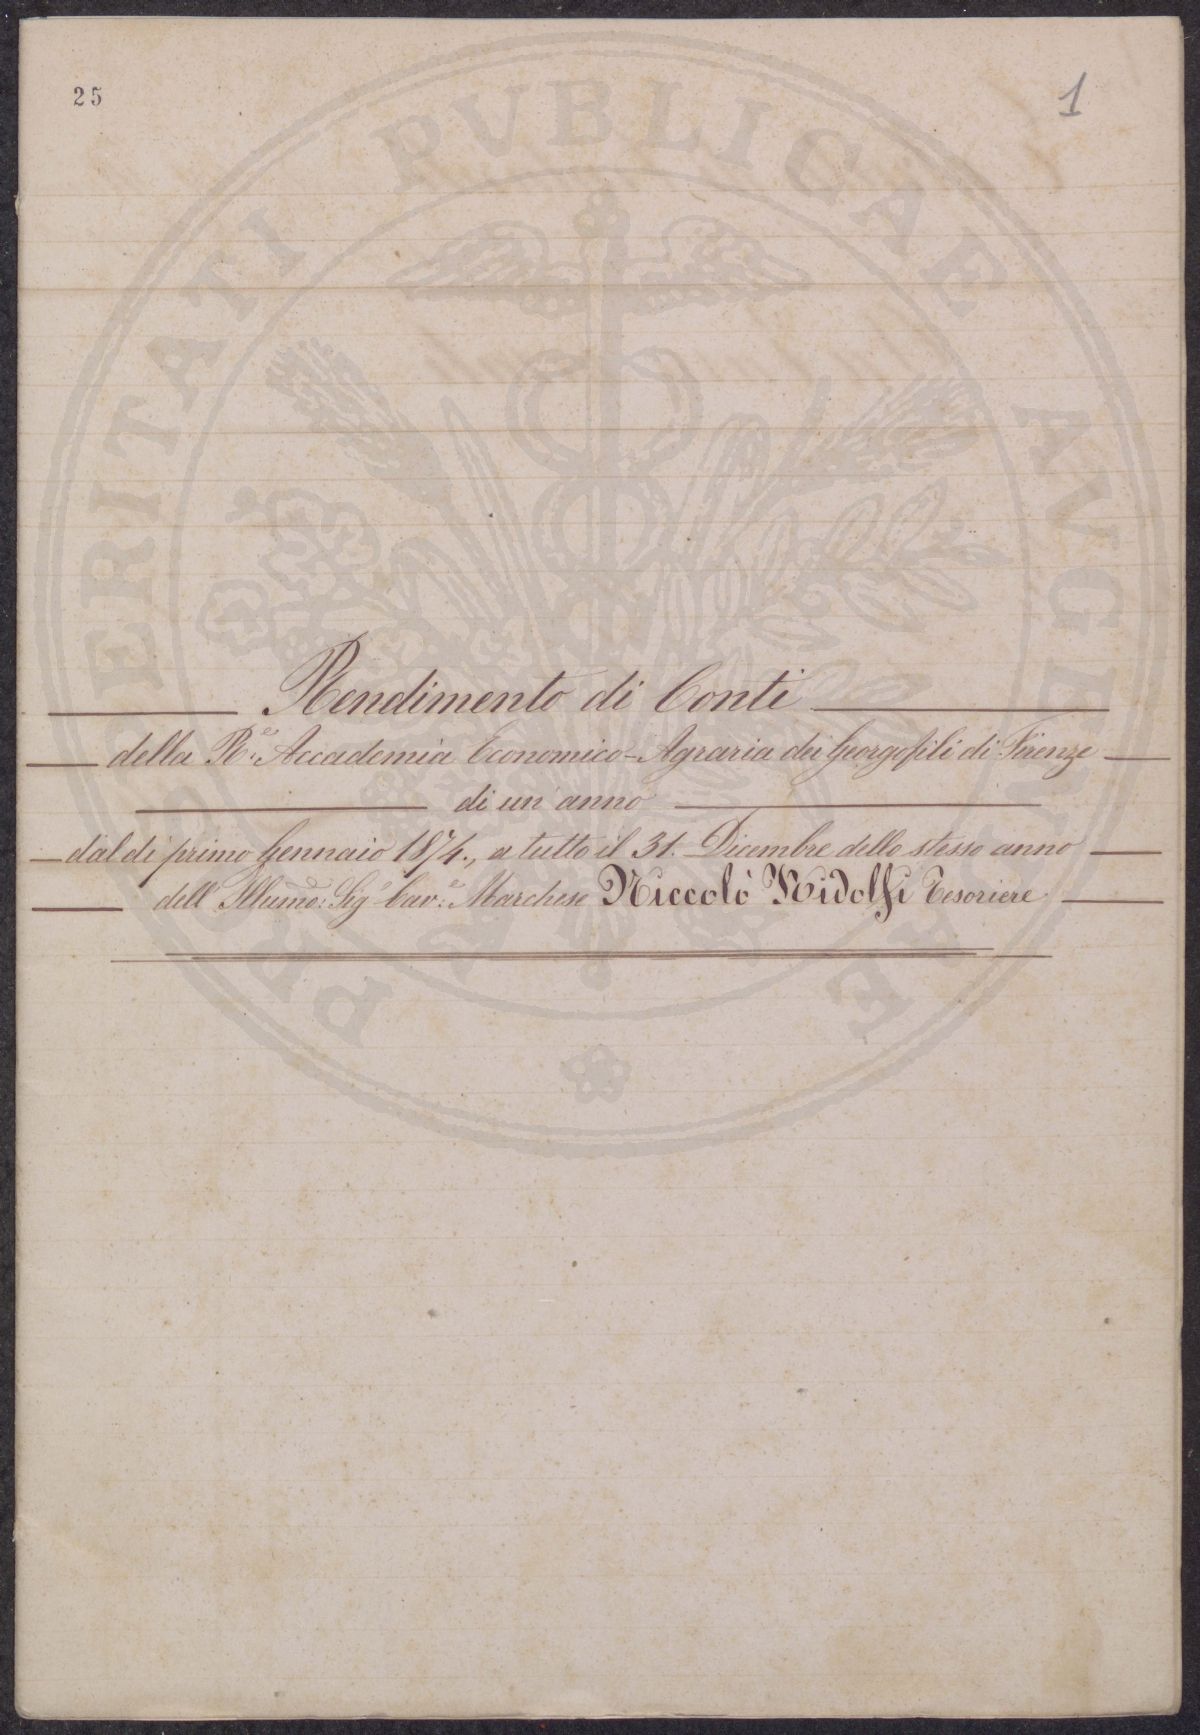 25
1
PROSPERITATI PVBLICAE AVGENDAE
Rendimento di Conti
della R.e Accademia Economico-Agraria dei Georgofili di Firenze
di un anno
dal dì primo Gennaio 1874., a tutto il 31. Dicembre dello stesso anno
dell' Illumo: Sig.e Cav.e Marchese Niccolò Ridolfi Tesoriere